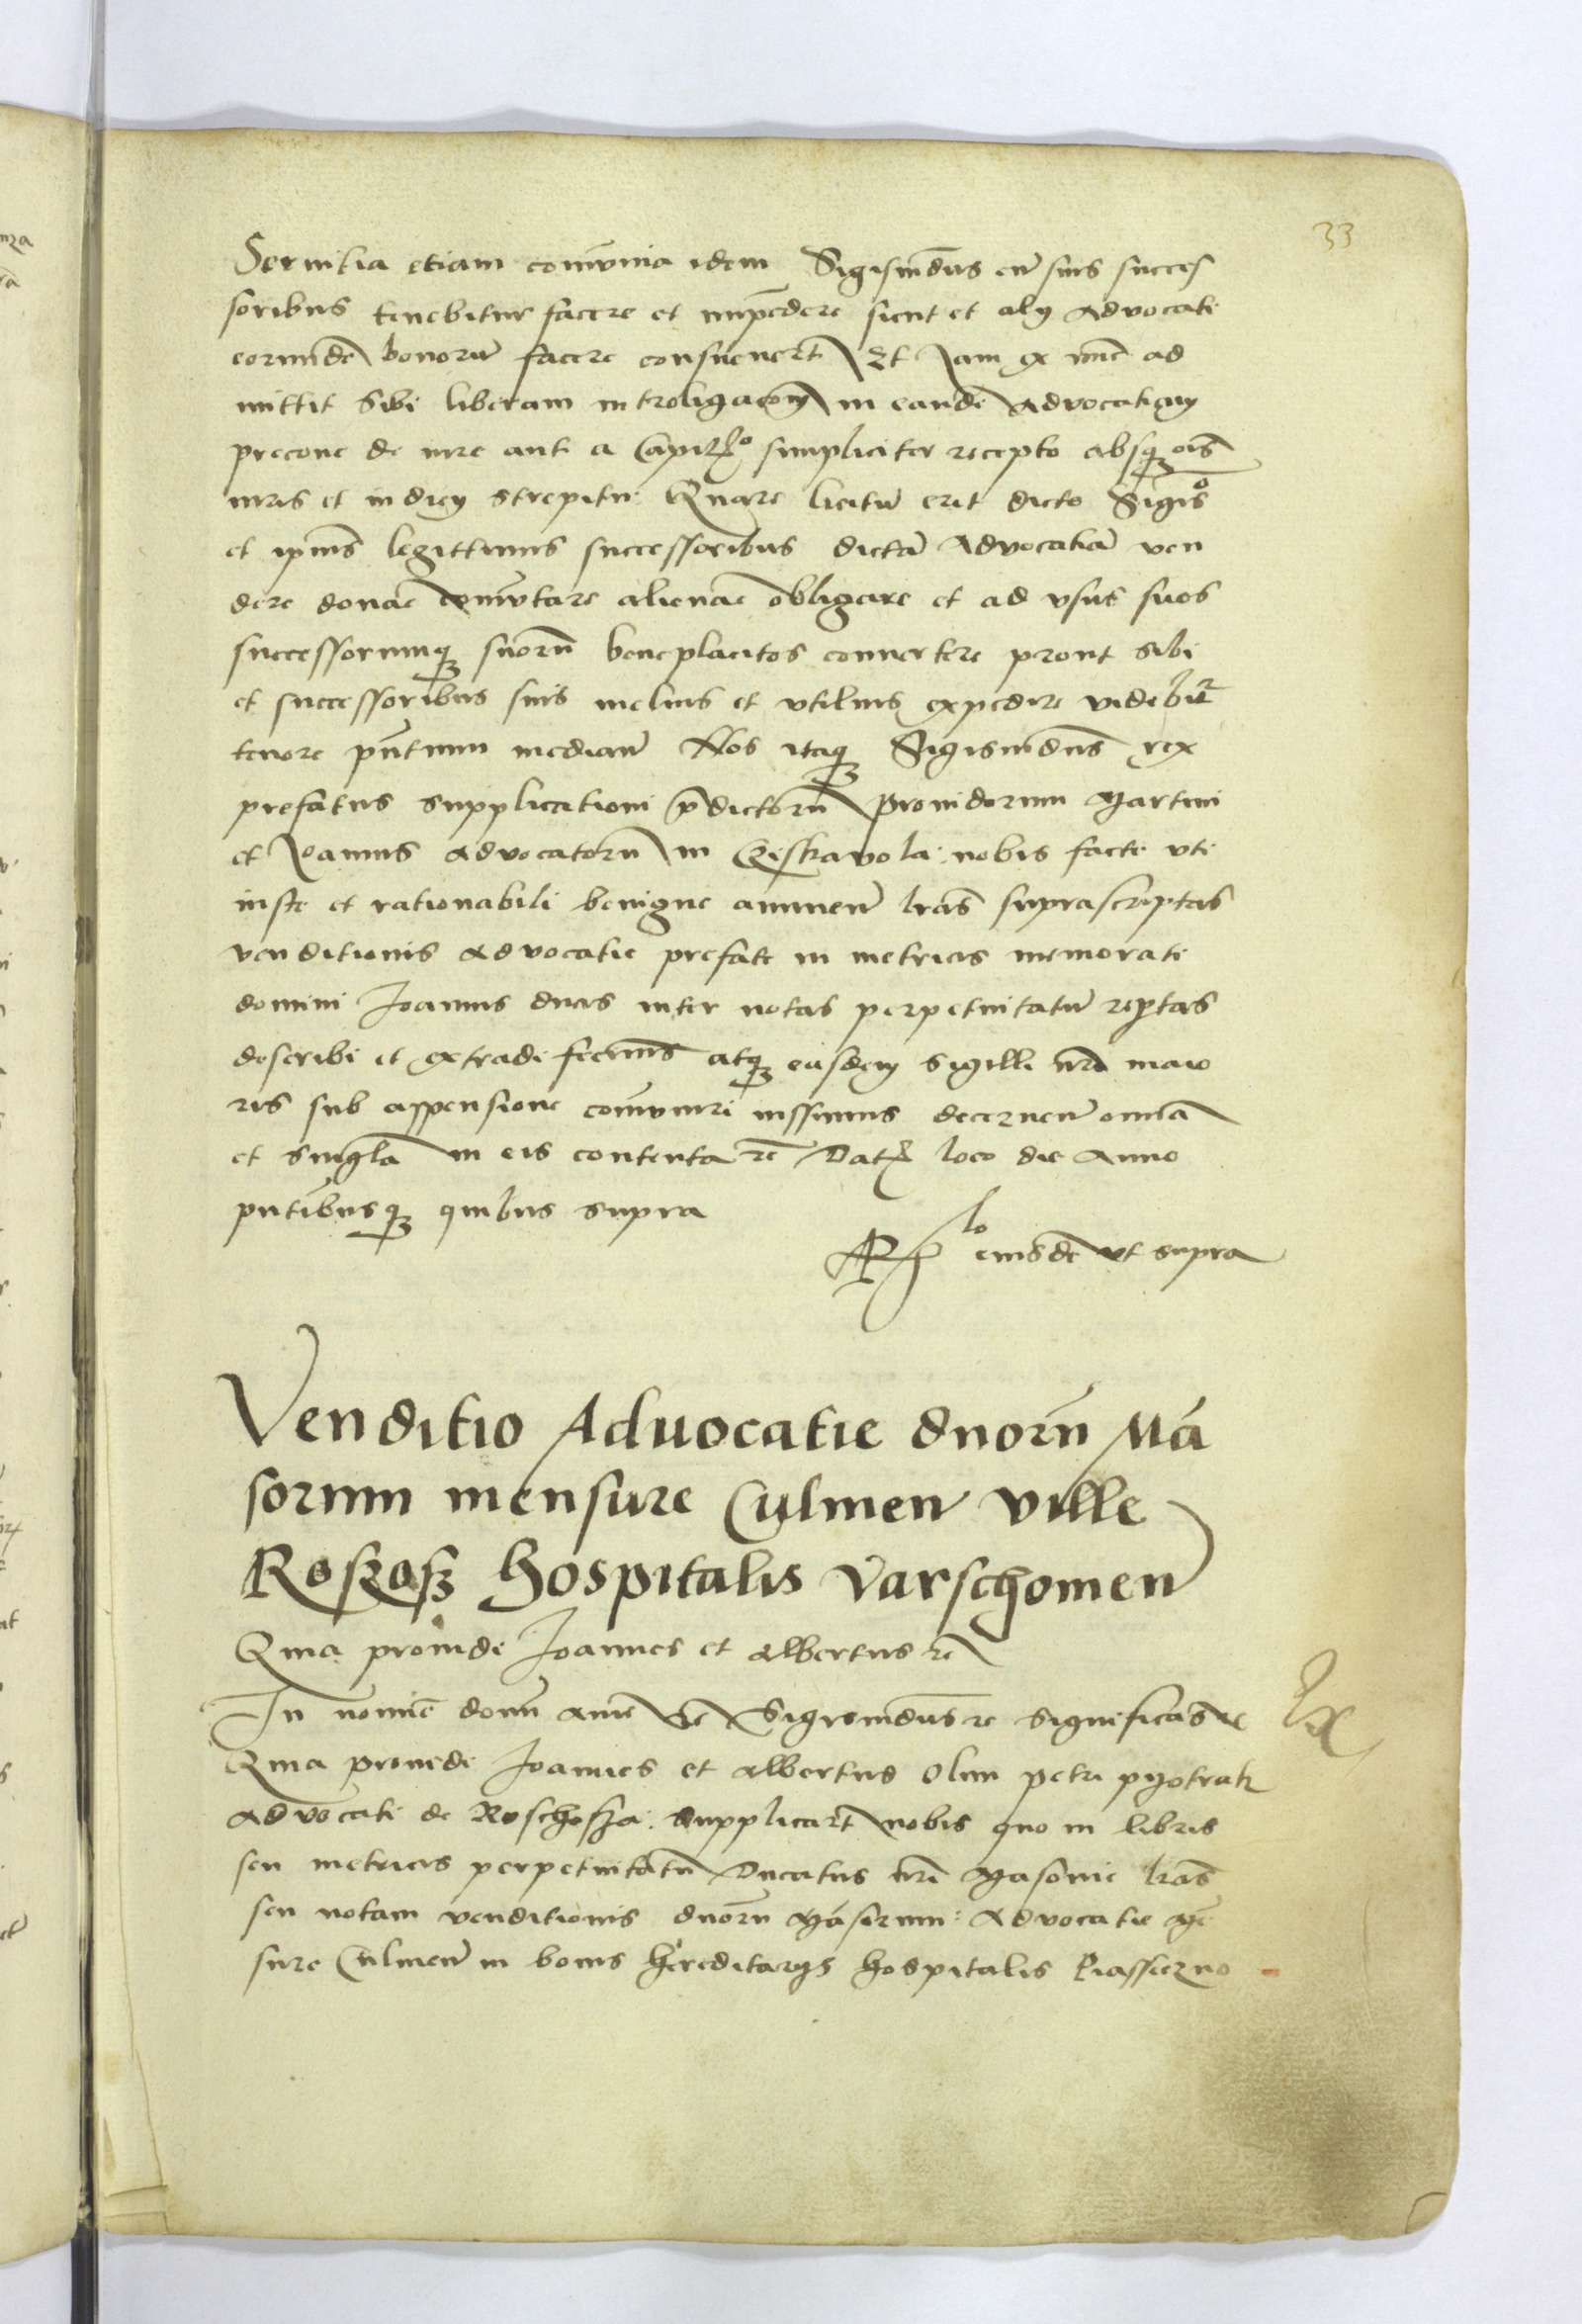 33
Servitia etiam com̄unia idem Sigismūdus cū suis succes
soribus tenebitur facere et impēdere sicut et alij Advocati
eorundē bonorū facere consueuerūt Et Iam ex nūc ad
mittit sibi liberam introligacōem in eandē Advocatiam
precone de iure aut a Capitlo simpliciter recepto absq̨ oīs
iuris et indicij strepitu Quare licitū erit dicto Sigisº
et ipius legittimis successoribus dictā Advocatiā ven
dere donare com̄utare alienare obligare et ad vsus suos
successorumq̨ suorū beneplacitos conuertere prout sibi
et successoribus suis melius et vtilius expedire videbit
tenore pn̄tium median̄ Nos itaq̨ Sigismūdus rex
prefatus supplicationi p̄dictorū prouidorum Martini
et Joannis advocatorū in nobis facte vti
iuste et rationabili benigne annuen̄ lrās suprascriptas
venditionis advocatie prefate in metricis memorati
domini Joannis ducis inter notas perpetuitatū rep̄tas
describi et extradi fecimus atq̨ easdem sigilli nr̄i maio
ris sub appensione com̄uniri iussimus decernen̄ omnia
et singlā in eis contenta rc̄ Dat loco die Anno
pn̄tibusq̨ quibus supra
Rlo eiusdē vt supra
Venditio Aduocatie duorū Má
sorum mensure Culmen̄ ville
Roszosz hospitalis Varschouien̄
Quia prouidi Joannes et Albertus rc̄
In nomīe domī amē Sigismūdus rc significās rc
Quia prouidi Joannes et Albertus olim petri
advocati de Roschosza supplicarūt nobis quo in libris
seu metricis perpetuitatū Ducatus nr̄i Masouie lrās
seu notam venditionis duorū Másorum Advocatie mē
sure Culmen̄ in bonis hereditarijs hospitalis